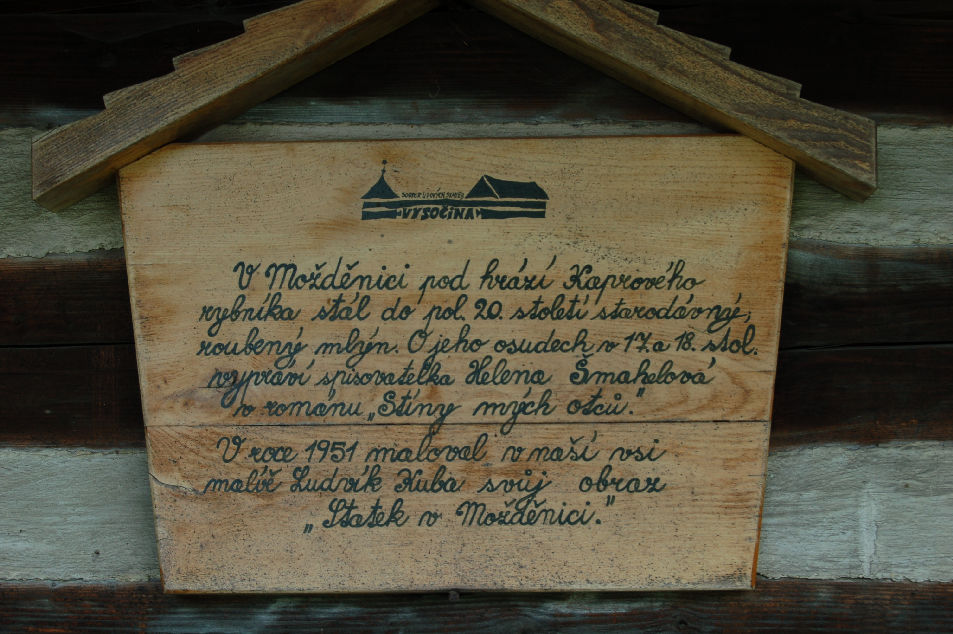 SOUBOR LIDOVÝCH STAVEB
VYSOČINA
V Možděnici pod hrází Kaprového
rybníka stál do pol. 20. století starodávný,
roubený mlýn. O jeho osudech v 17. a 18. stol.
vypráví spisovatelka Helena Šmahelová
v románu „Stíny mých otců.“
V roce 1951 maloval v naší vsi
malíř Ludvík Kuba svůj obraz
„Statek v Možděnici.“